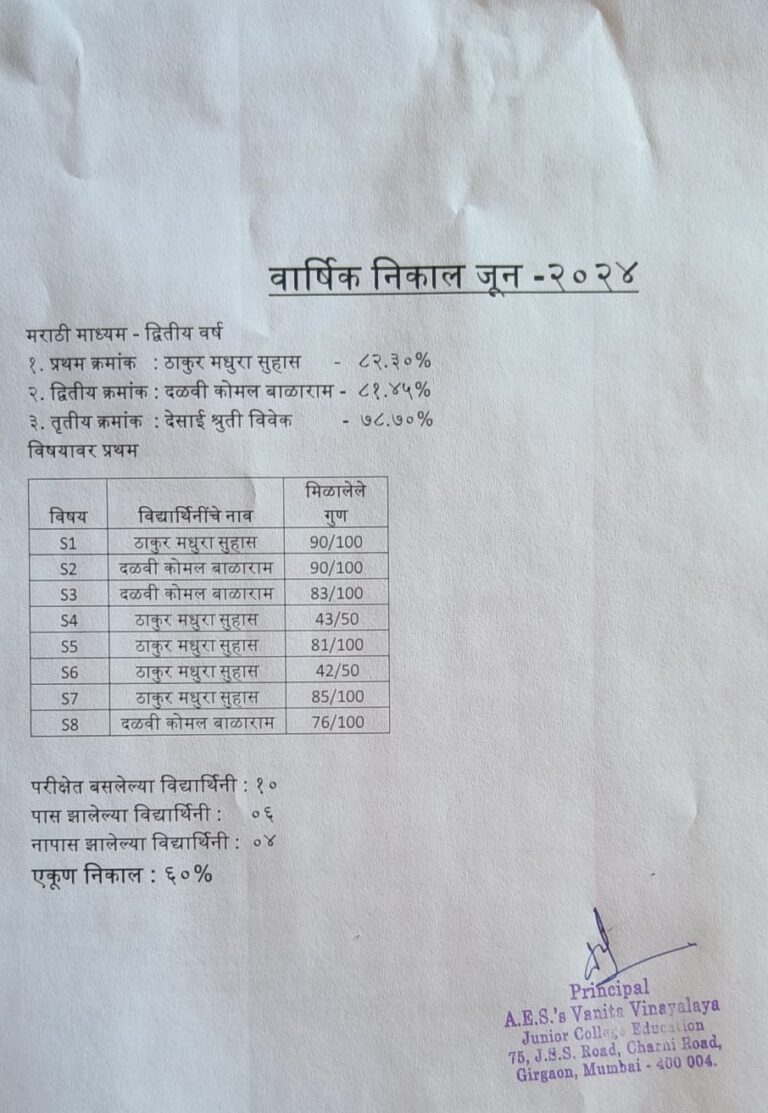 वार्षिक निकाल जून -२०२४
मराठी माध्यम - द्वितीय वर्ष
१. प्रथम क्रमांक : ठाकुर मधुरा सुहास - ८२.३०%
२. द्वितीय क्रमांक : दळवी कोमल बाळाराम - ८१.४५%
३. तृतीय क्रमांक : देसाई श्रुती विवेक - ७८.७०%
विषयावर प्रथम
विषय विद्यार्थिनींचे नाव मिळालेले गुण
S1 ठाकुर मधुरा सुहास 90/100
S2 दळवी कोमल बाळाराम 90/100
S3 दळवी कोमल बाळाराम 83/100
S4 ठाकुर मधुरा सुहास 43/50
S5 ठाकुर मधुरा सुहास 81/100
S6 ठाकुर मधुरा सुहास 42/50
S7 ठाकुर मधुरा सुहास 85/100
S8 दळवी कोमल बाळाराम 76/100
परीक्षेत बसलेल्या विद्यार्थिनी : १०
पास झालेल्या विद्यार्थिनी : ०६
नापास झालेल्या विद्यार्थिनी : ०४
एकूण निकाल : ६०%
Principal
A.E.S.'s Vanita Vinayalaya
Junior College Education
75, J.S.S. Road, Charni Road,
Girgaon, Mumbai - 400 004.